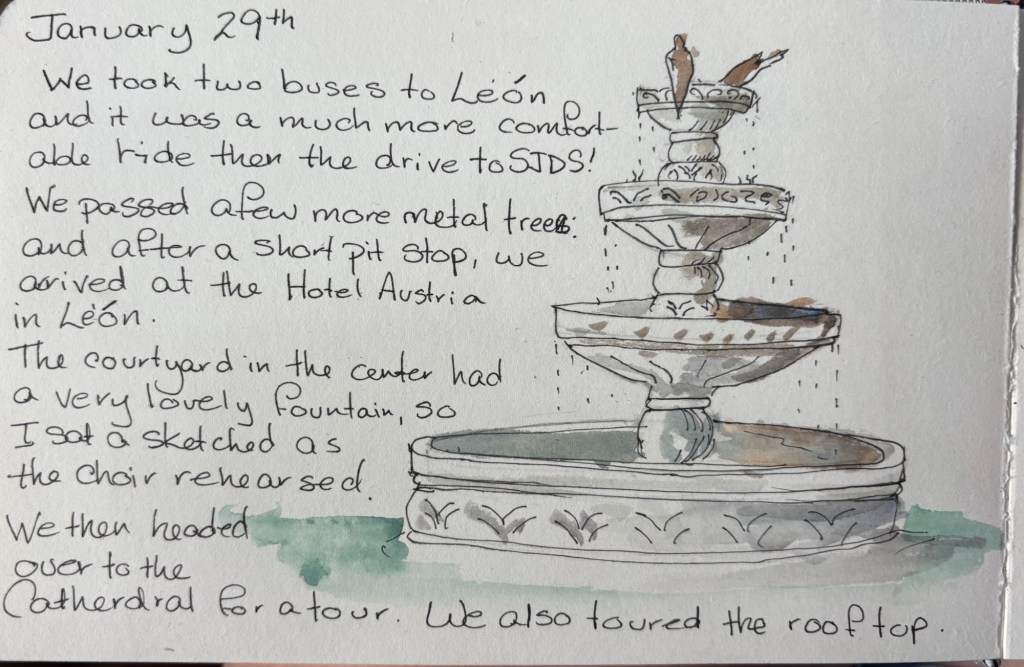 January 29th
We took two buses to León
and it was a much more comfort-
able ride then the drive to SJDS!
We passed a few more metal trees.
and after a short pit stop, we
arrived at the Hotel Austria
in León.
The courtyard in the center had
a very lovely fountain, so
I sat & sketched as
the choir rehearsed.
We then headed
over to the
Catherdral for a tour. We also toured the rooftop.